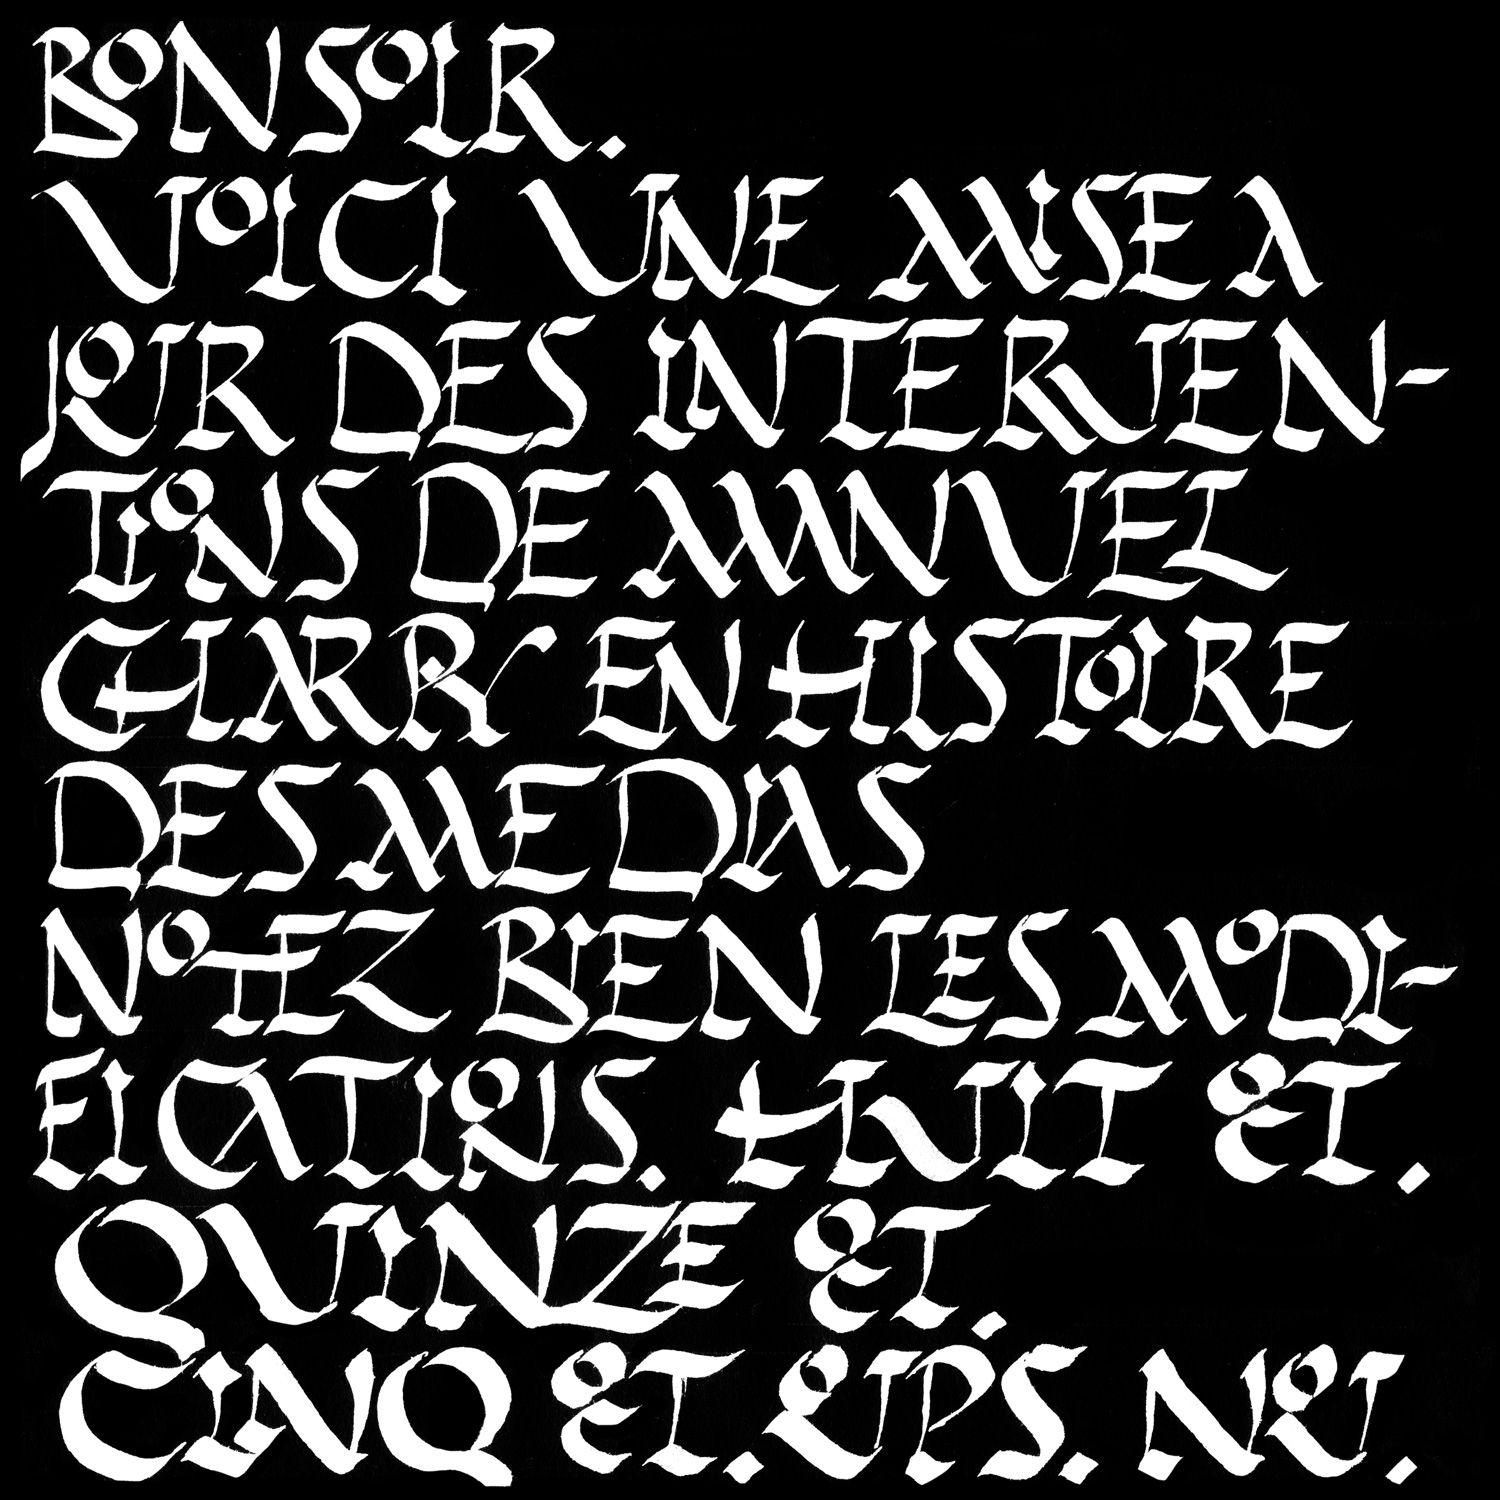 BONSOIR.
VOICI UNE MISE A
JOUR DES INTERVEN-
TIONS DE MANUEL
CHARRY EN HISTOIRE
DES MEDIAS
NOTEZ BIEN LES MODI-
FICATIONS. HUIT OCT.
QUINZE OCT.
CINQ OCT. OUPS. NOV.